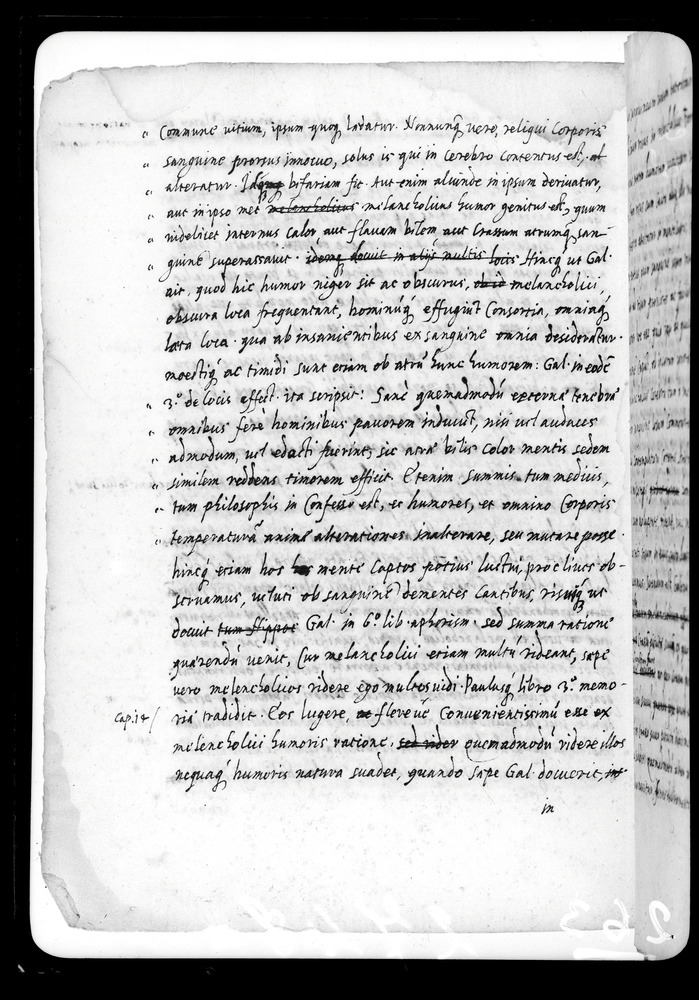 " Commune vitium, ipsum quoq; lædatur. Nonnunq̃ vero, reliqui Corporis
" sanguine prorsus innocuo, solus is qui in cerebro contentus est,
" alteratur. Idq; bifariam fit. Aut enim aliunde in ipsum derivatur,
" aut in ipso met melancholicus melancholicus humor genitus est, quum
" videlicet internus calor aut flavam bilem aut crassum atrumq; san-
" guine superassavit. idemq; docuit in alijs multis locis Hincq; ut Gal.
ait, quod hic humor niger sit ac obscurus, melancholici,
obscura loca frequentant, hominũq; effugiũt Consortia, omniaq;
læta loca. qua ab insanientibus ex sanguine omnia desideratur.
moestiq; ac timidi sunt etiam ob atrũ hunc humorem: Gal. in eodẽ
" 3.º de locis affect. ita scripsit: Sanè quemadmodũ externæ tenebræ
" omnibus ferè hominibus pavorem inducũt, nisi vel audaces
" admodum, vel edocti fuerint, sic atræ bilis color mentis sedem
" similem reddens timorem efficit. Etenim summis tum medicis,
" tum philosophis in Confesso est, et humores, et omnino Corporis
" temperaturã animæ alterationes inalterare, seu mutare posse.
hincq; etiam hos mente Captos potius luctui, proclives ob-
servamus, veluti ob sanguinẽ dementes Cantibus, risuiq; ut
docuit tum Hippoc Gal. in 6.º lib. aphorism. sed summa ratione
quærendũ venit, Cur melancholici etiam multũ rideant, sæpe
vero melencholicos ridere ego multos vidi. Paulusq; libro 3.º memo-
Cap. 14 / riæ tradidit. Eos lugere, flereve Convenientissimũ esse ex
melencholici humoris ratione. sed rider quemadmodũ ridere illos
nequaq̃ humoris natura suadet, quando sæpe Gal. docuerit, int
in